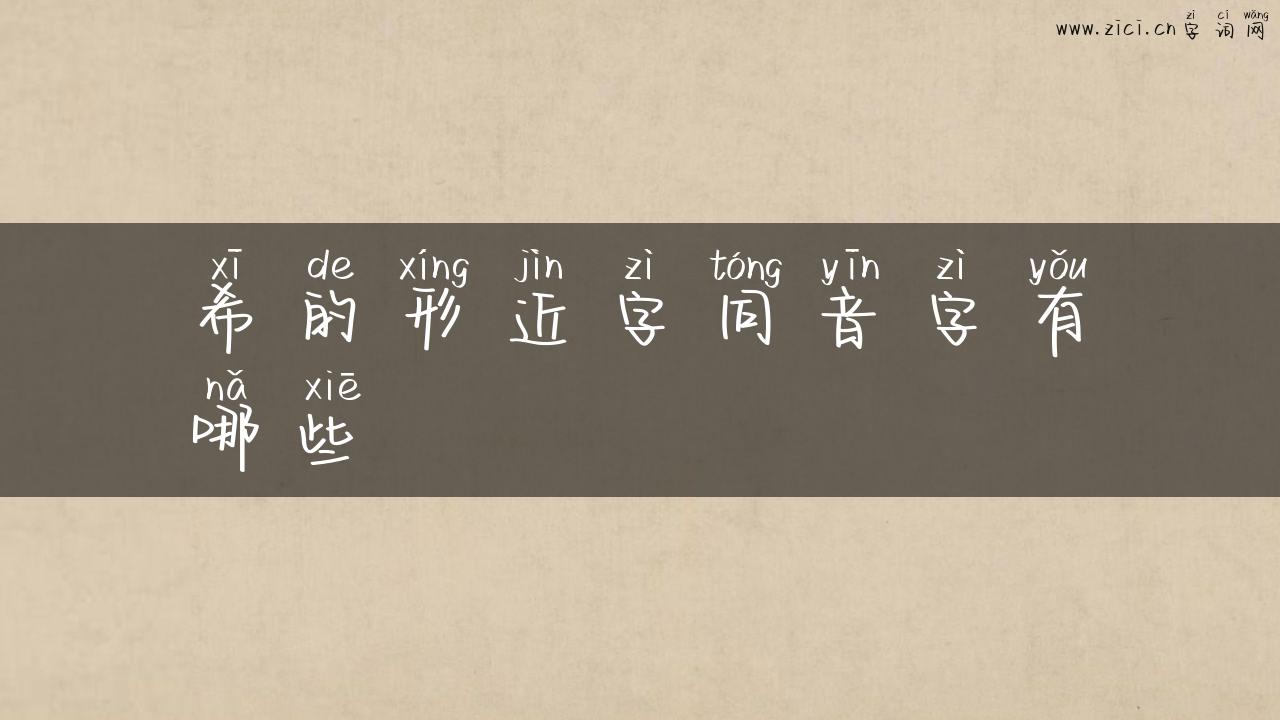 zì cí wǎng
www.zici.cn 字 词 网
xī de xíng jìn zì tóng yīn zì yǒu
希 的 形 近 字 同 音 字 有
nǎ xiē
哪 些